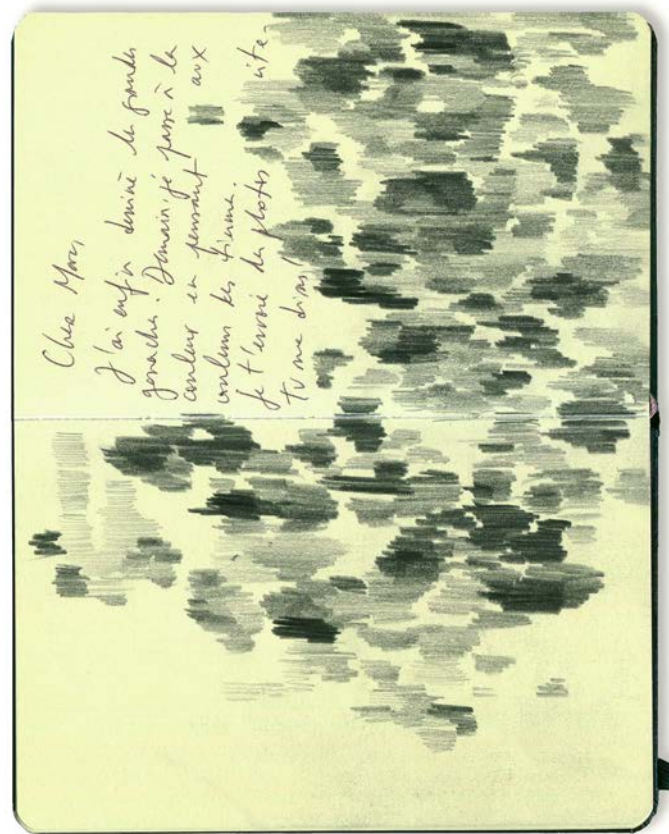 Cher Marc,
J'ai enfin dessiné les grandes
Demain, je passe à la
couleur en pensant aux
couleurs des tiennes.
Je t'envoie des photos vite.
Tu me diras!